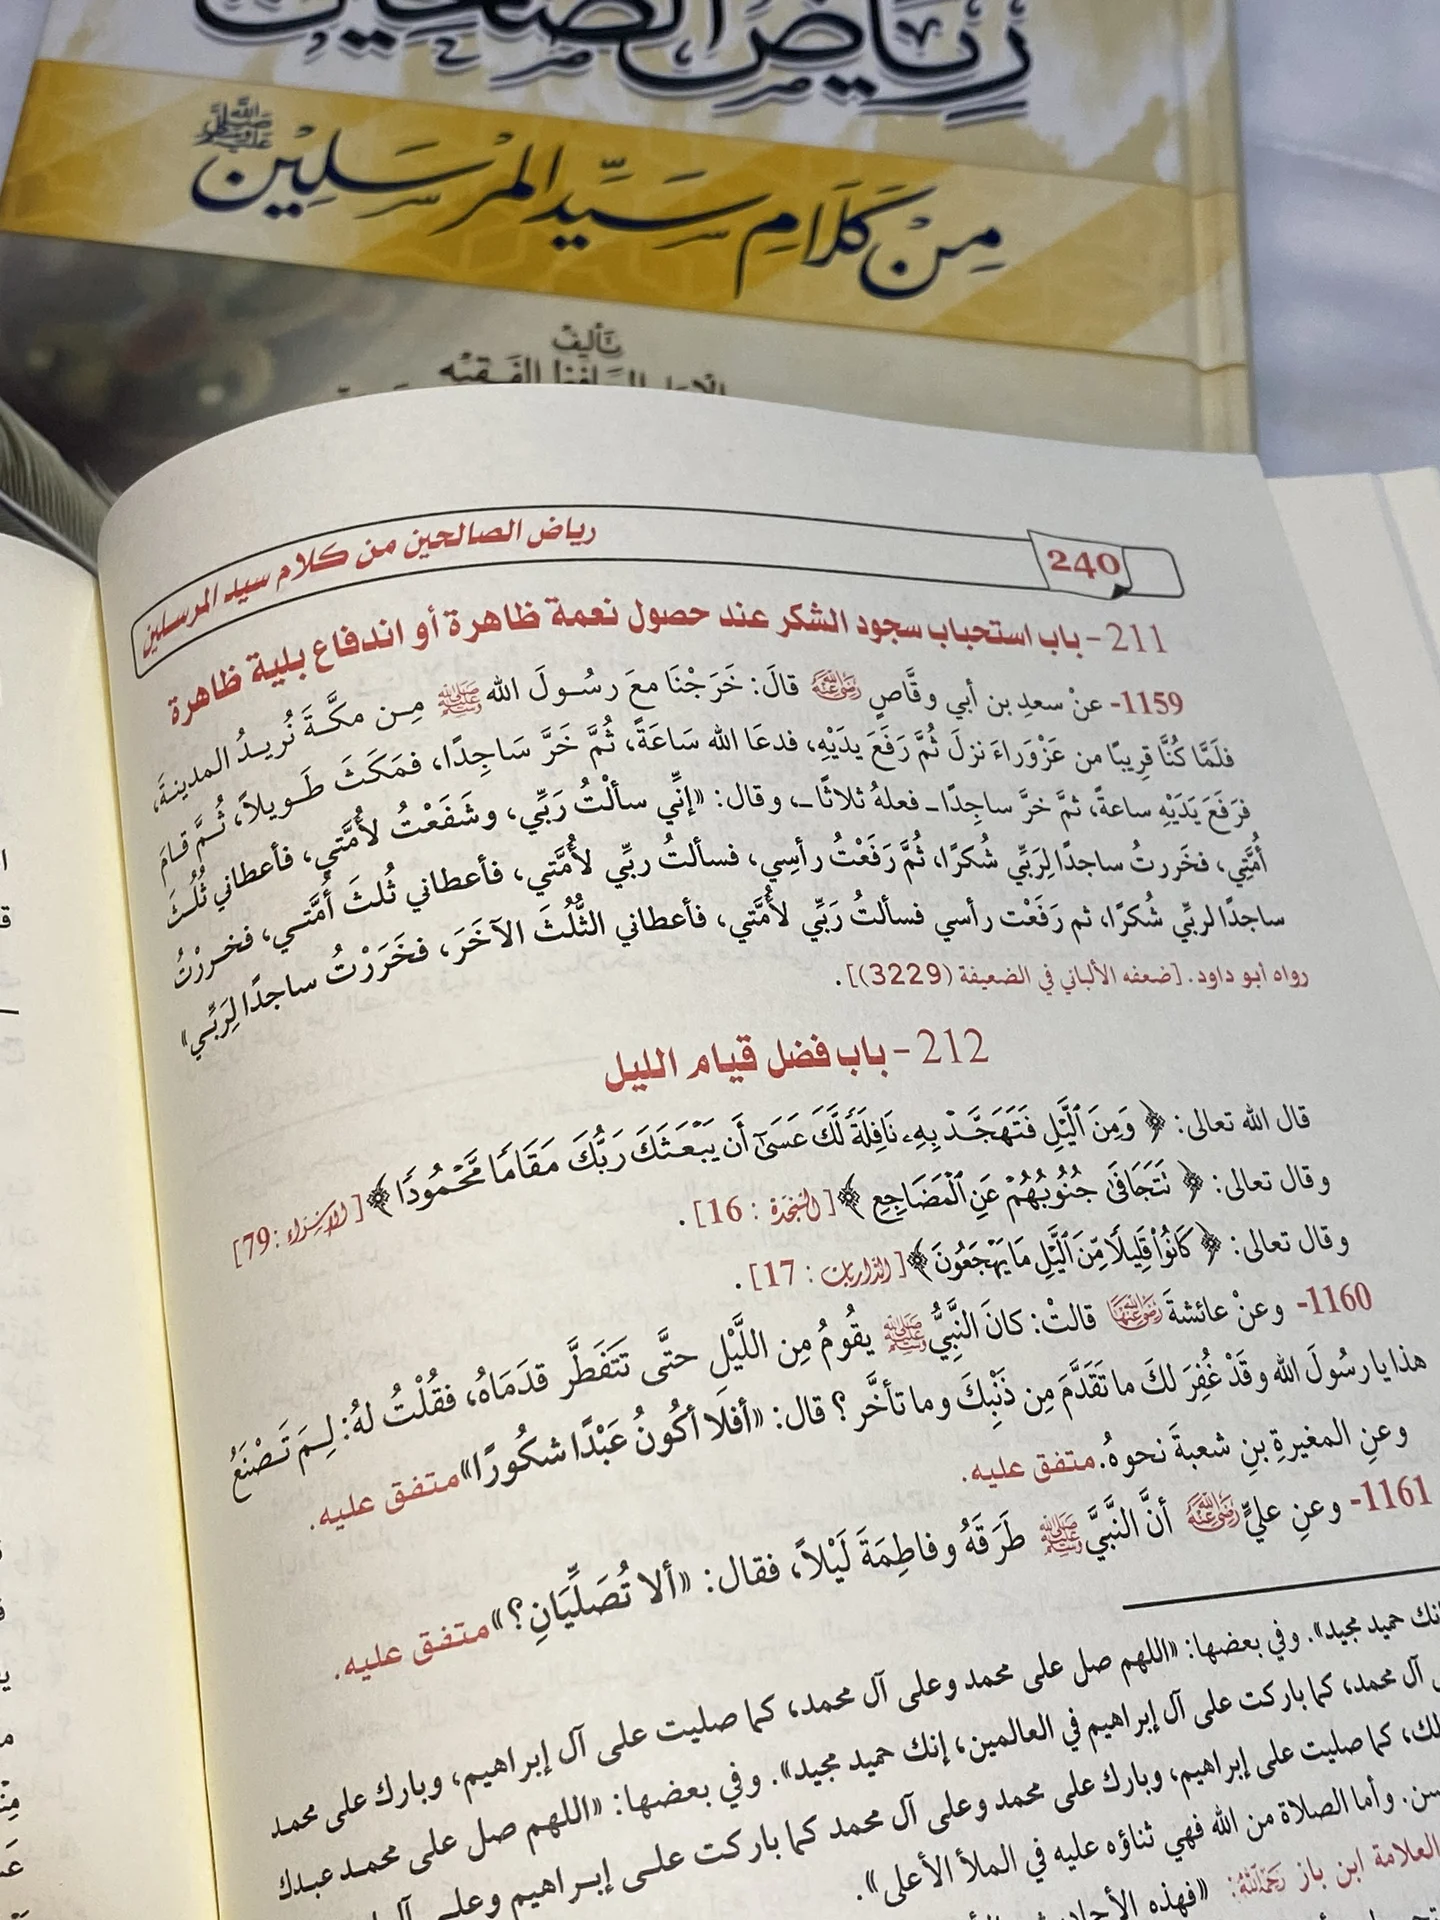 رياض الصالحين
من كلام سيد المرسلين ﷺ
تأليف
الفقيه
240
رياض الصالحين من كلام سيد المرسلين
211- باب استحباب سجود الشكر عند حصول نعمة ظاهرة أو اندفاع بلية ظاهرة
1159- عنْ سعدِ بن أبي وقَّاصٍ رضي الله عنه قالَ: خَرَجْنَا معَ رسُولَ الله ﷺ مِن مكَّةَ نُريدُ المدينةَ،
فلَمَّا كُنَّا قرِيبًا من عَزْوَراءَ نزلَ ثُمَّ رَفَعَ يدَيْهِ، فدعَا الله سَاعَةً، ثُمَّ خَرَّ سَاجِدًا، فمَكَثَ طَويلاً، ثُمَّ قامَ
فرَفَعَ يَدَيْهِ ساعةً، ثمَّ خرَّ ساجِدًا ـ فعلهُ ثلاثًا ـ، وقال: «إنِّي سألْتُ رَبِّي، وشَفَعْتُ لأُمَّتي، فأعطاني ثُلُثَ
أُمَّتِي، فخَررتُ ساجدًا لِرَبِّي شُكرًا، ثُمَّ رَفَعْتُ رأسِي، فسألتُ ربِّي لأُمَّتي، فأعطاني ثُلثَ أُمَّتي، فخررْتُ
ساجدًا لربِّي شُكرًا، ثم رَفَعْت رأسي فسألتُ رَبِّي لأُمَّتي، فأعطاني الثُّلُثَ الآخَرَ، فخَرَرْتُ ساجدًا لِرَبِّي»
رواه أبو داود. [ضعفه الألباني في الضعيفة (3229)].
212- باب فضل قيام الليل
قال الله تعالى: ﴿ وَمِنَ ٱلَّيْلِ فَتَهَجَّدْ بِهِۦ نَافِلَةً لَّكَ عَسَىٰٓ أَن يَبْعَثَكَ رَبُّكَ مَقَامًا مَّحْمُودًا ﴾ [الإسراء: 79]
وقال تعالى: ﴿ تَتَجَافَىٰ جُنُوبُهُمْ عَنِ ٱلْمَضَاجِعِ ﴾ [السَّجدَة : 16].
وقال تعالى: ﴿ كَانُوا۟ قَلِيلًا مِّنَ ٱلَّيْلِ مَا يَهْجَعُونَ ﴾ [الذاريات : 17].
1160- وعنْ عائشةَ رضي الله عنها قالتْ: كانَ النَّبِيُّ ﷺ يقُومُ مِن اللَّيْلِ حتَّى تتَفَطَّر قدَمَاهُ، فقُلْتُ لهُ: لِمَ تَصْنَعُ
هذا يا رسُولَ الله وقَدْ غُفِرَ لكَ ما تقَدَّمَ مِن ذَنْبِكَ وما تأخَّر؟ قال: «أفلَا أكُونُ عَبْدًا شكُورًا» متفق عليه.
وعنِ المغيرةِ بنِ شعبةَ نحوهُ. متفق عليه.
1161- وعنِ عليٍّ رضي الله عنه أنَّ النَّبيَّ ﷺ طَرَقَهُ وفاطِمَةَ لَيْلاً، فقال: «ألا تُصَلِّيَانِ؟» متفق عليه.
إنك حميد مجيد». وفي بعضها: «اللهم صل على محمد وعلى آل محمد، كما صليت على آل إبراهيم، وبارك على محمد
آل محمد، كما باركت على آل إبراهيم في العالمين، إنك حميد مجيد». وفي بعضها: «اللهم صل على محمد عبدك
كما صليت على إبراهيم، وبارك على محمد وعلى آل محمد كما باركت على إبراهيم وعلى
وأما الصلاة من الله فهي ثناؤه عليه في الملأ الأعلى».
العلامة ابن باز رحمه الله: «فهذه